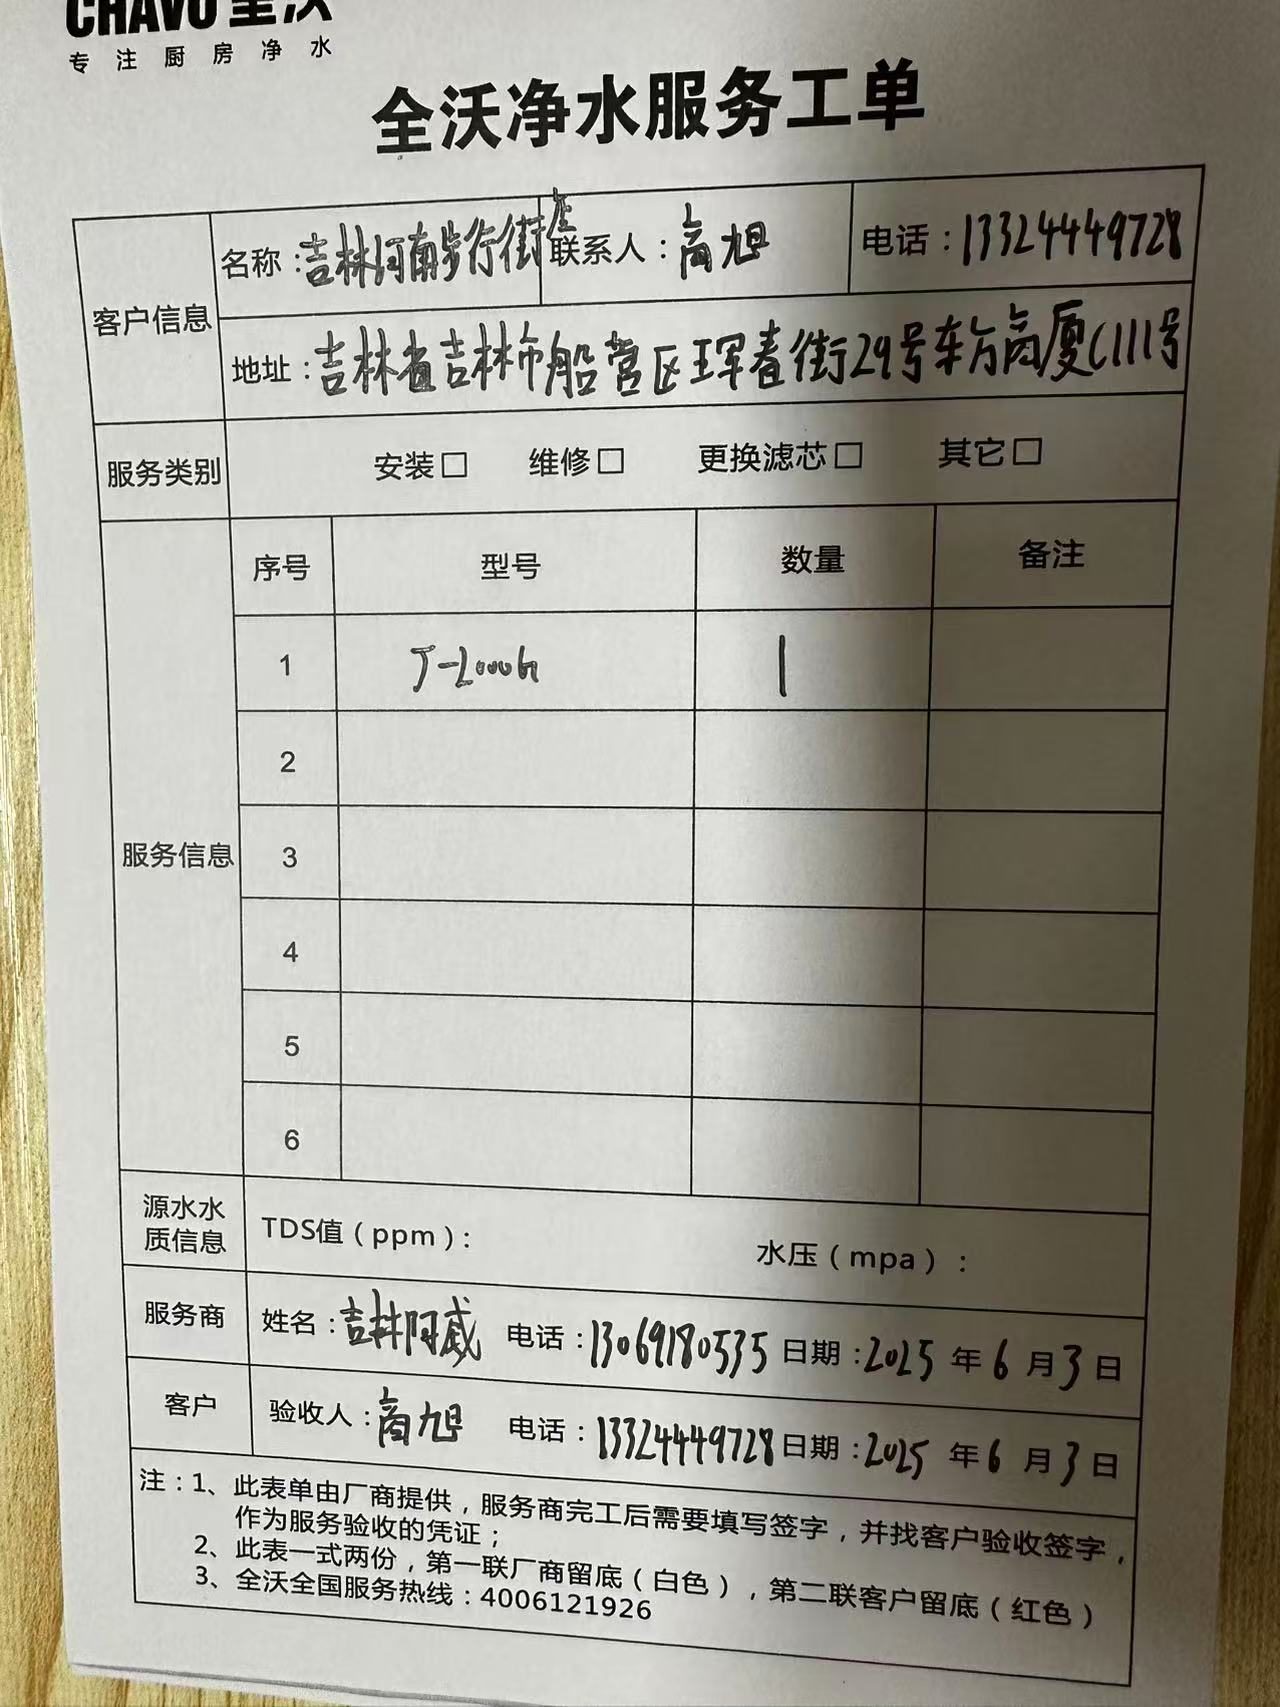 CHAVO 全沃
专注厨房净水
全沃净水服务工单
客户信息
名称：吉林河南步行街店
联系人：高旭
电话：13324449728
地址：吉林省吉林市船营区珲春街29号东方高厦C111号
服务类别
安装□ 维修□ 更换滤芯□ 其它□
服务信息
序号 型号 数量 备注
1 J-2000G 1
2
3
4
5
6
源水水
质信息
TDS值（ppm）： 水压（mpa）：
服务商 姓名：吉林阿威 电话：13069180535 日期：2025年6月3日
客户 验收人：高旭 电话：13324449728 日期：2025年6月3日
注：1、此表单由厂商提供，服务商完工后需要填写签字，并找客户验收签字，
作为服务验收的凭证；
2、此表一式两份，第一联厂商留底（白色），第二联客户留底（红色）
3、全沃全国服务热线：4006121926